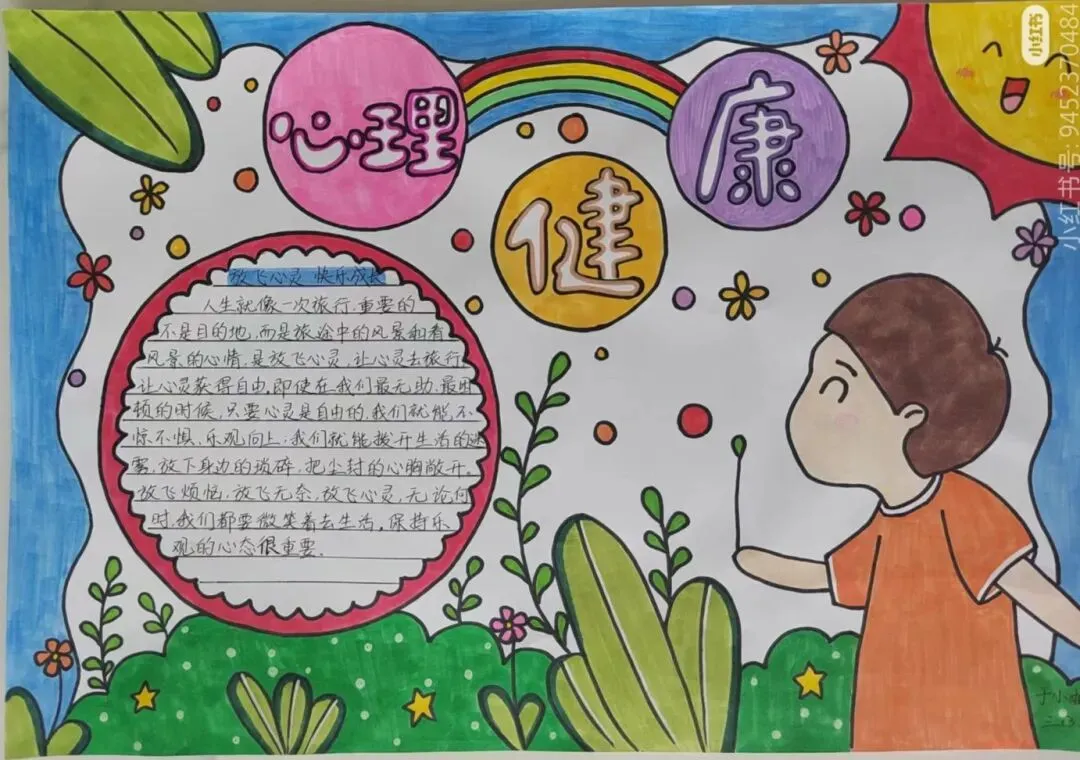 心理
健
康
小红书
小红书号: 9452370484
放飞心灵 快乐成长
人生就像一次旅行.重要的
不是目的地,而是旅途中的风景和看
风景的心情.是放飞心灵,让心灵去旅行
让心灵获得自由.即使在我们最无助.最困
顿的时候,只要心灵是自由的.我们就能,不
惊不惧、乐观向上.我们就能拨开生活的迷
雾.放下身边的琐碎.把尘封的心胸敞开.
放飞烦恼.放飞无奈.放飞心灵,无论何
时.我们都要微笑着去生活.保持乐
观的心态很重要.
于小